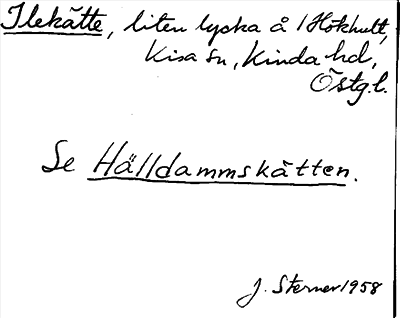 Ilekätte, liten lycka å 1 Hökhult,
Kisa sn, Kinda hd,
Östg.l.
Se Hälldammskätten.
J. Sterner 1958